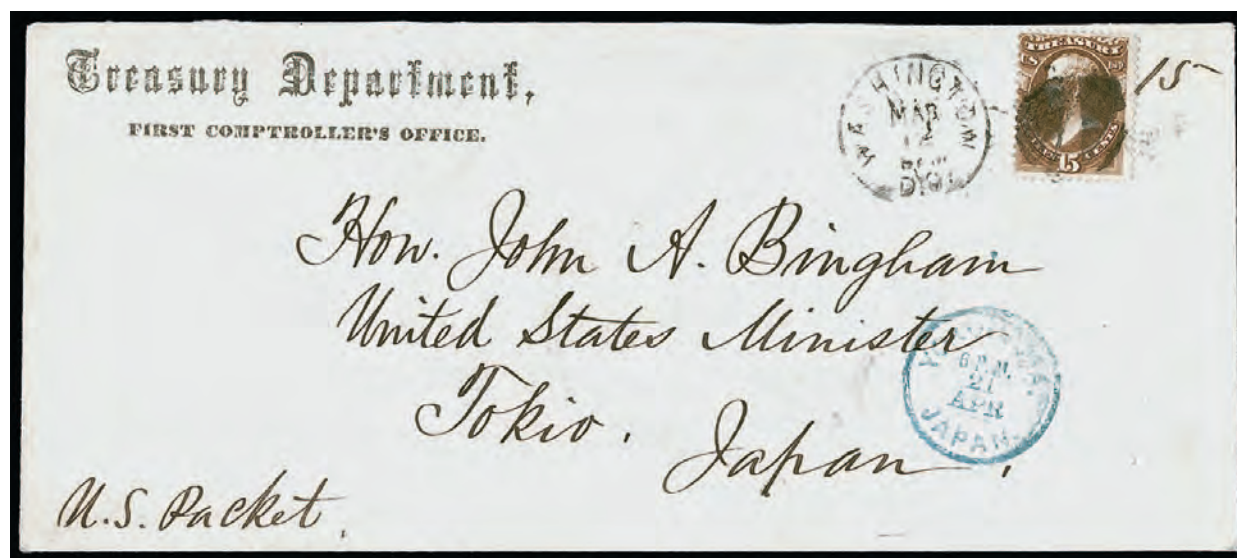 Treasury Department,
FIRST COMPTROLLER'S OFFICE.
WASHINGTON
MAR
12
D.C.
TREASURY
U.S.
CENTS
15
15
Hon. John A. Bingham
United States Minister
Tokio.
Japan,
YOKOHAMA.
6 P.M.
21
APR
JAPAN.
U.S. Packet,